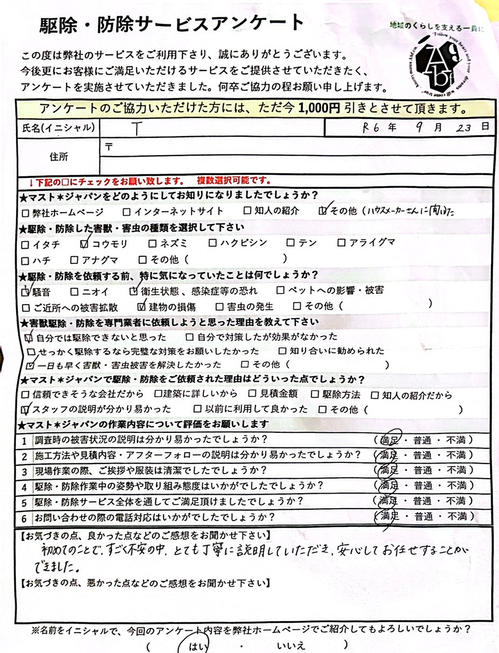 駆除・防除サービスアンケート
地域のくらしを支える一員に
この度は弊社のサービスをご利用下さり、誠にありがとうございます。
今後更にお客様にご満足いただけるサービスをご提供させていただきたく、
アンケートを実施させていただきました。何卒ご協力の程お願い申し上げます。
アンケートのご協力いただけた方には、ただ今 1,000円 引きとさせて頂きます。
氏名(イニシャル) T R6 年 9 月 23 日
住所 〒
↓下記の□にチェックをお願い致します。 複数選択可能です。
★マスト＊ジャパンをどのようにしてお知りになりましたでしょうか？
□弊社ホームページ □インターネットサイト □知人の紹介 ☑その他（ハウスメーカーさんに聞いた
★駆除・防除した害獣・害虫の種類を選択して下さい
□イタチ ☑コウモリ □ネズミ □ハクビシン □テン □アライグマ
□ハチ □アナグマ □その他（ ）
★駆除・防除を依頼する前、特に気になっていたことは何でしょうか？
☑騒音 □ニオイ ☑衛生状態、感染症等の恐れ □ペットへの影響・被害
□ご近所への被害拡散 ☑建物の損傷 □害虫の発生 □その他（ ）
★害獣駆除・防除を専門業者に依頼しようと思った理由を教えて下さい
☑自分では駆除できないと思った □自分で対策したが効果がなかった
□せっかく駆除するなら完璧な対策をお願いしたかった □知り合いに勧められた
☑一日も早く害獣・害虫被害を解決したかった □その他（ ）
★マスト＊ジャパンで駆除・防除をご依頼された理由はどういった点でしょうか？
□信頼できそうな会社だから □建築に詳しいから □見積金額 □駆除方法 □知人の紹介だから
☑スタッフの説明が分かり易かった □以前に利用して良かった □その他（ ）
★マスト＊ジャパンの作業内容について評価をお願いします
1 調査時の被害状況の説明は分かり易かったでしょうか？ （満足・普通・不満）
2 施工方法や見積内容・アフターフォローの説明は分かり易かったでしょうか？ （満足・普通・不満）
3 現場作業の際、ご挨拶や服装は清潔でしたでしょうか？ （満足・普通・不満）
4 駆除・防除作業中の姿勢や取り組み態度はいかがでしたでしょうか？ （満足・普通・不満）
5 駆除・防除サービス全体を通してご満足頂けましたでしょうか？ （満足・普通・不満）
6 お問い合わせの際の電話対応はいかがでしたでしょうか？ （満足・普通・不満）
【お気づきの点、良かった点などのご感想をお聞かせ下さい】
初めてのことで、すごく不安の中、とても丁寧に説明していただき、安心してお任せすることが
できました。
【お気づきの点、悪かった点などのご感想をお聞かせ下さい】
※名前をイニシャルで、今回のアンケート内容を弊社ホームページでご紹介してもよろしいでしょうか？
（ はい ・ いいえ ）